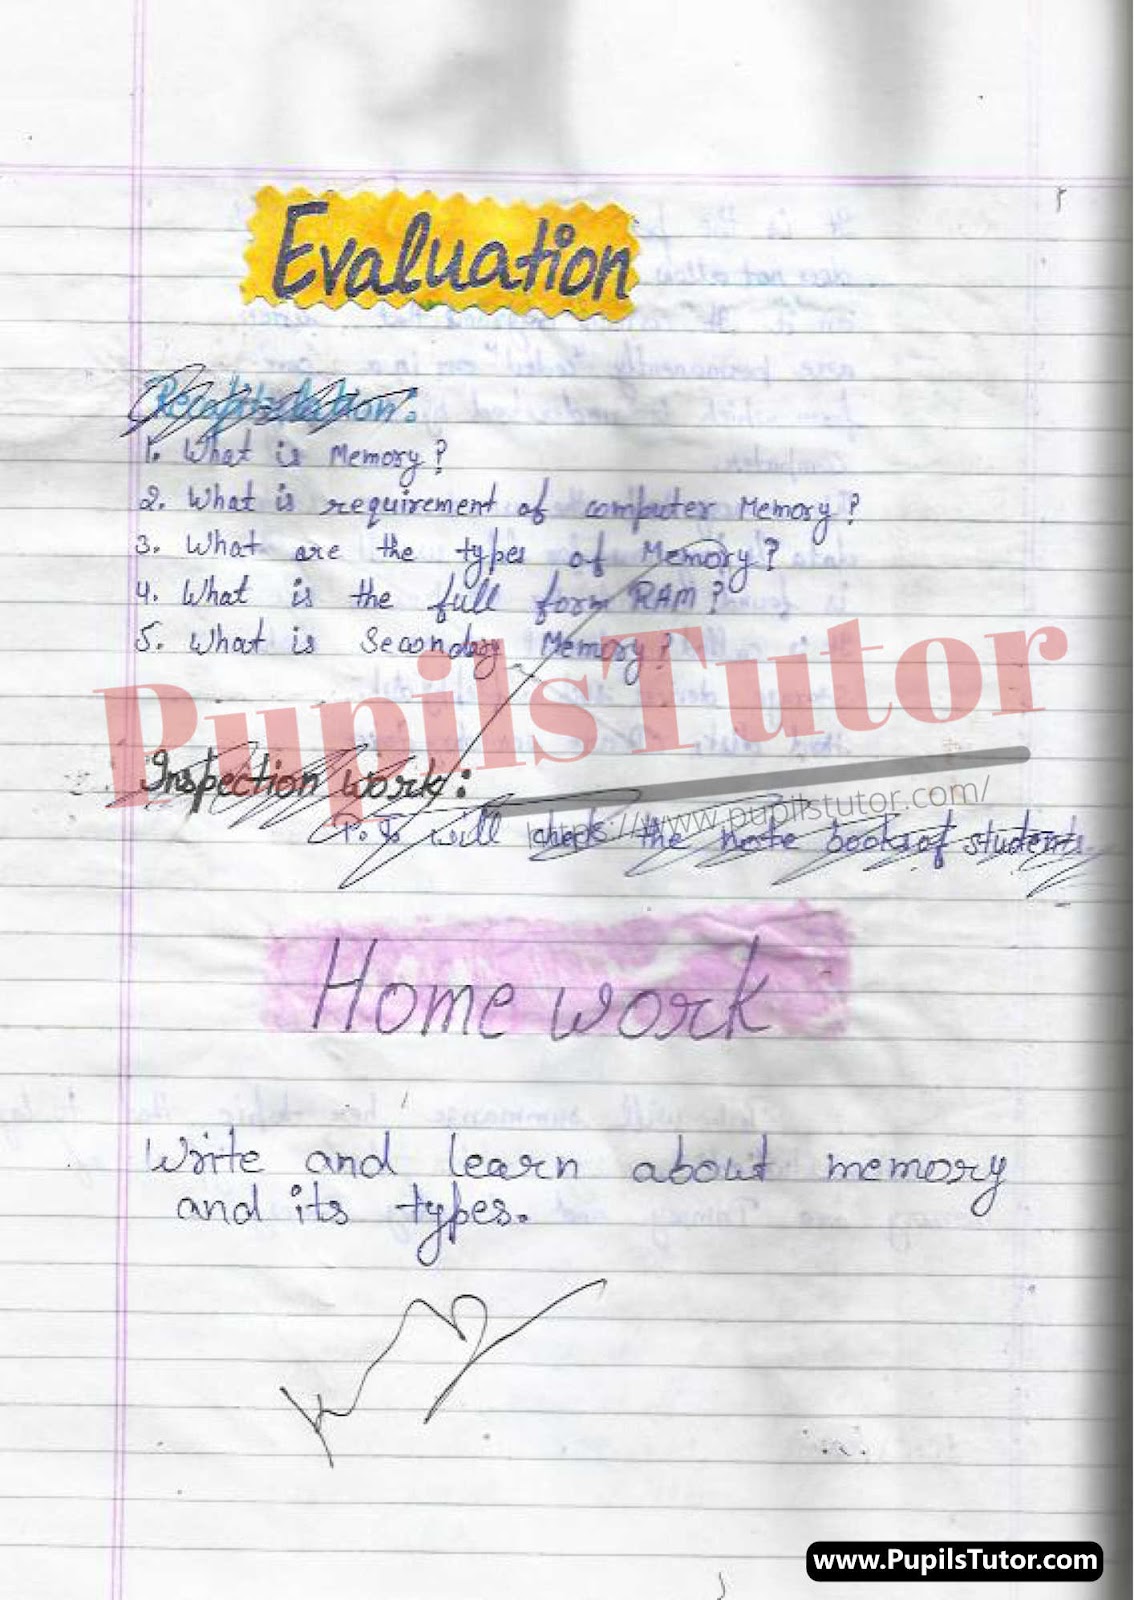 Evaluation
Recapitulation:
1. What is Memory?
2. What is requirement of computer Memory?
3. What are the types of Memory?
4. What is the full form RAM?
5. What is Secondary Memory?
PupilsTutor
Inspection work:
https://www.pupilstutor.com/
P.T will check the note books of students.
Home work
Write and learn about memory
and its types.
www.PupilsTutor.com